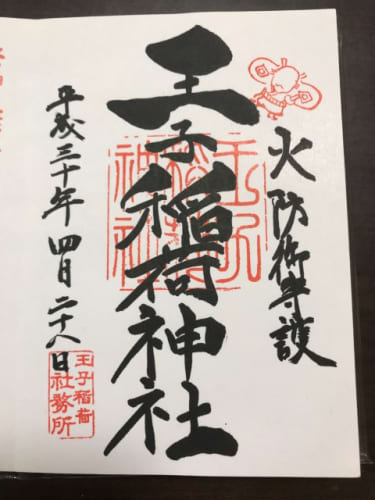 火防御守護
王子稲荷神社
王子稲荷神社
平成三十年四月二十八日
王子稲荷
社務所